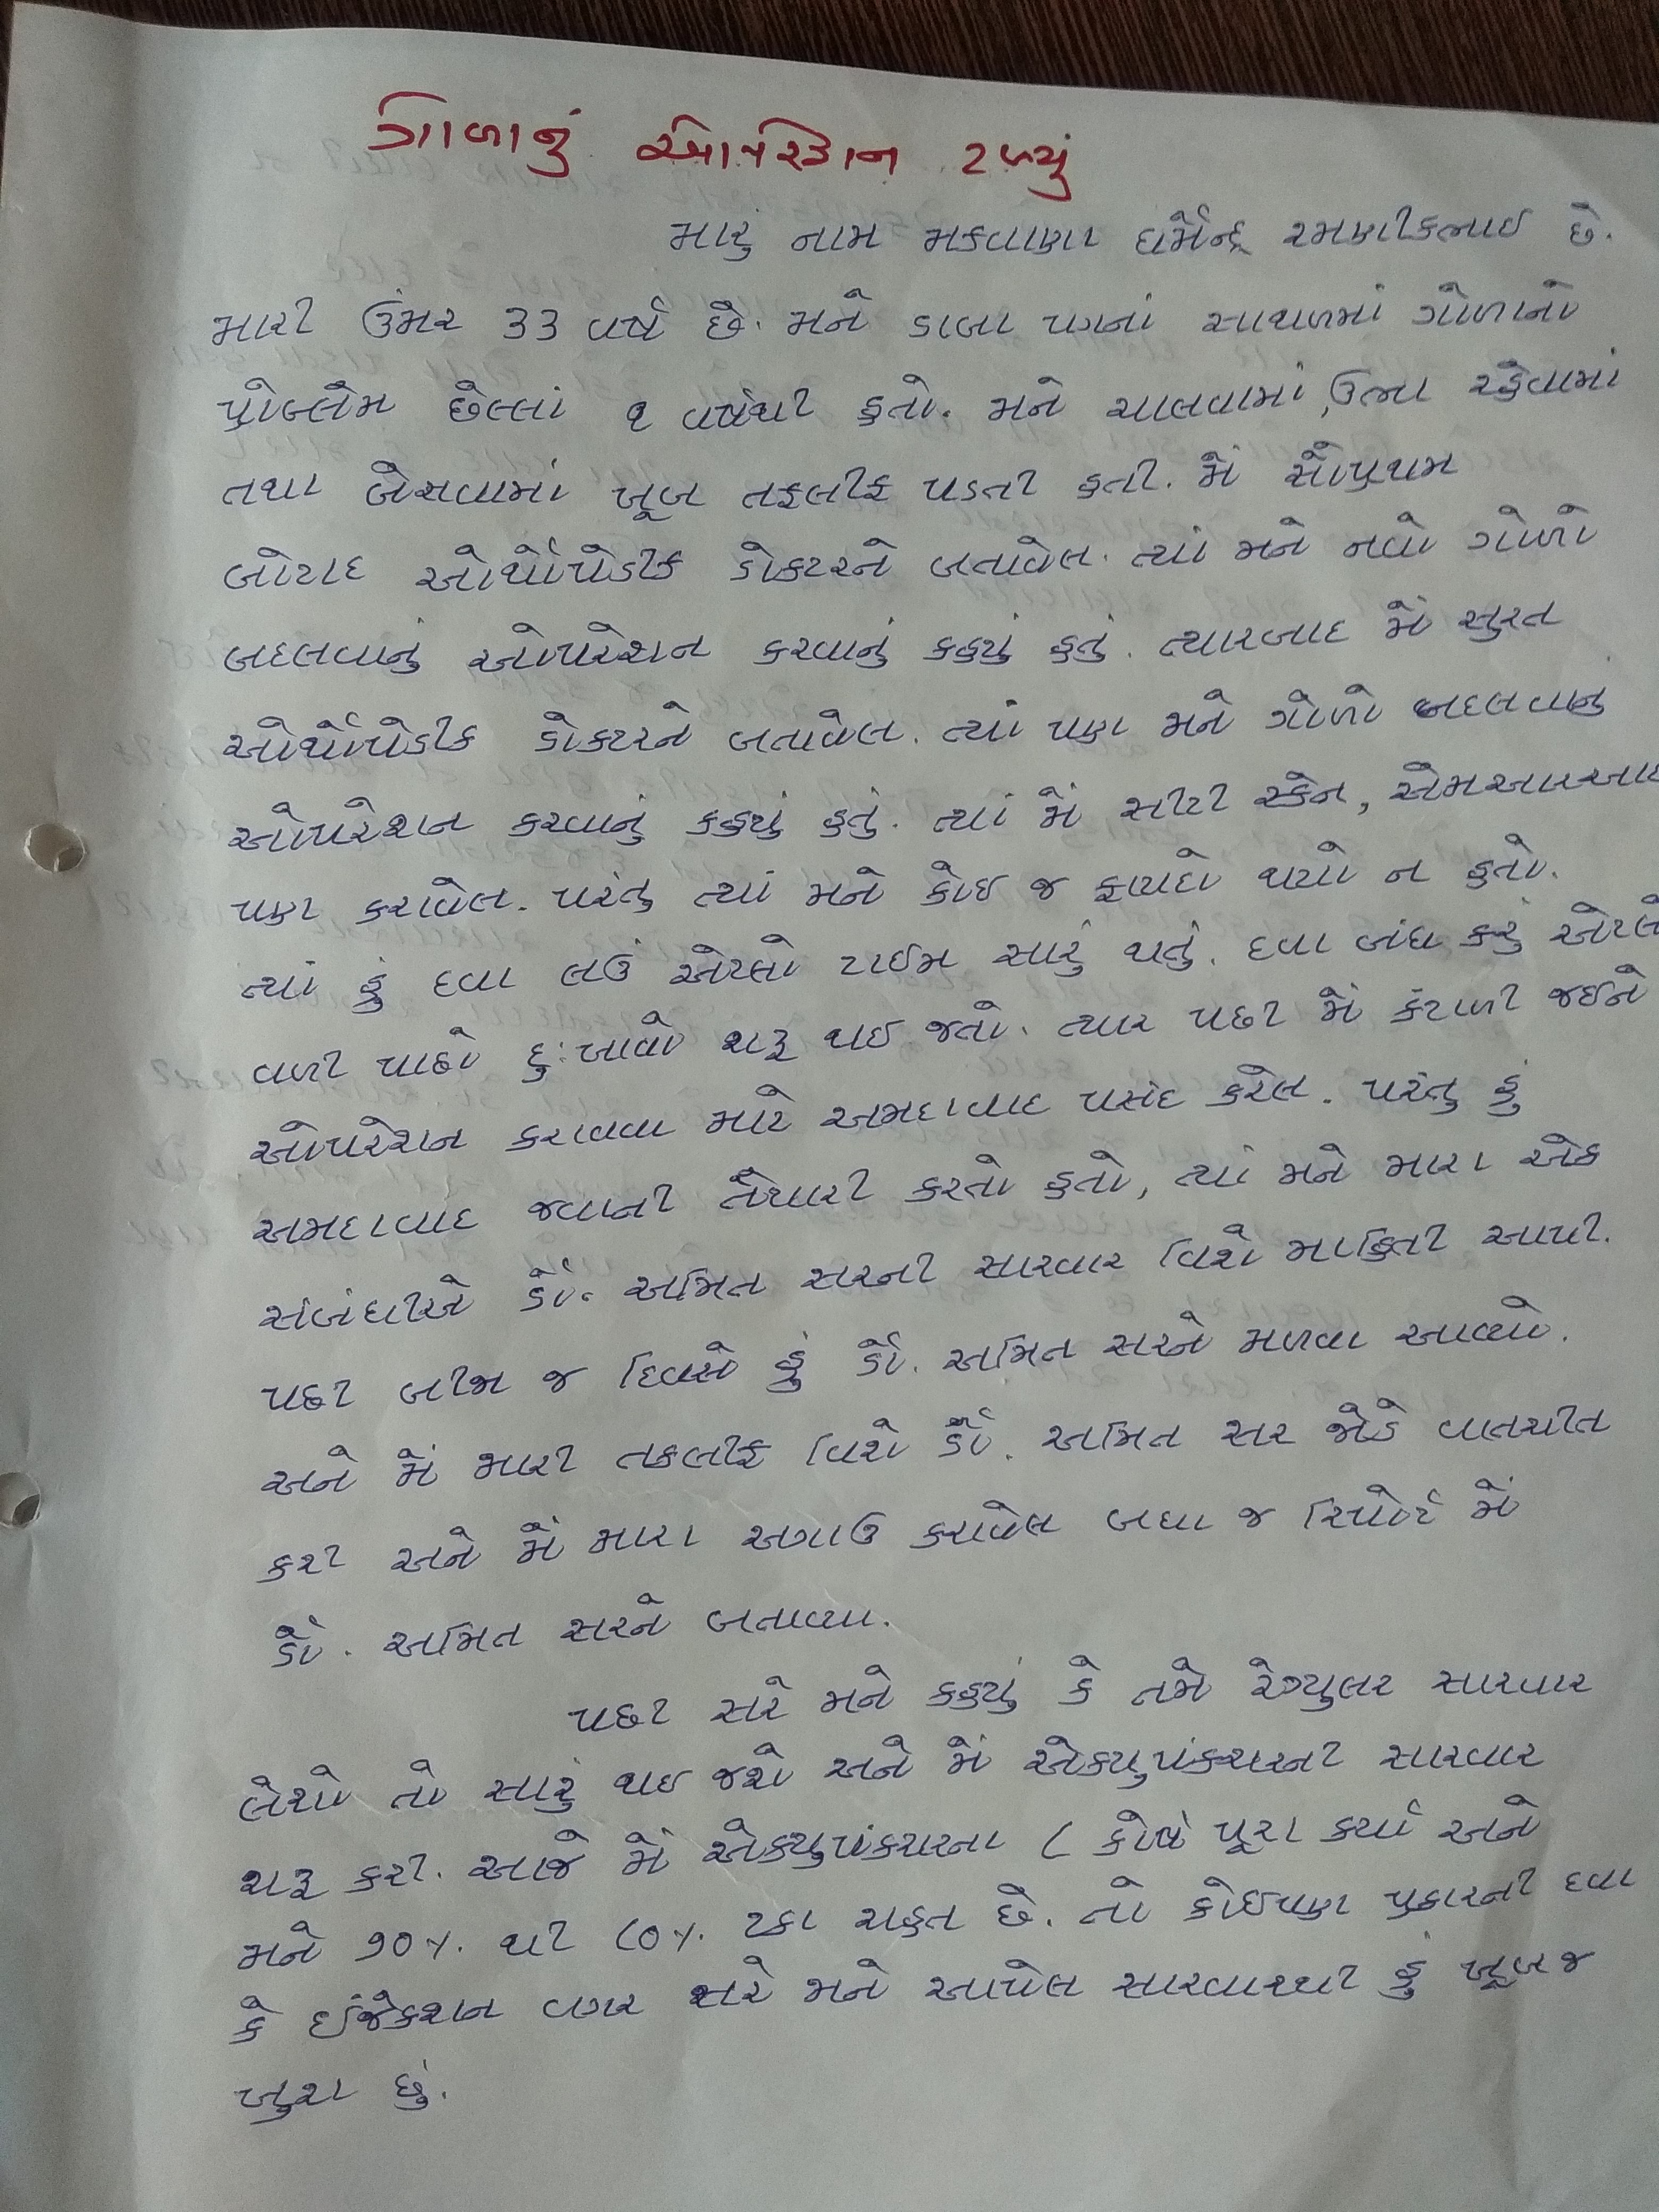 ગોળાનું ઓપરેશન ટળ્યું
મારું નામ મકવાણા ધર્મેન્દ્ર રમણીકભાઈ છે.
મારી ઉંમર 33 વર્ષ છે. મને ડાબા પગનાં સાથળમાં ગોળાનો
પ્રોબ્લેમ છેલ્લાં ૧ વર્ષથી હતો. મને ચાલવામાં, ઉભા રહેવામાં
તથા બેસવામાં ખૂબ તકલીફ પડતી હતી. મેં સૌપ્રથમ
બોટાદ ઓર્થોપેડીક ડોકટરને બતાવેલ. ત્યાં મને નવો ગોળો
બદલવાનું ઓપરેશન કરવાનું કહ્યું હતું. ત્યારબાદ મેં સુરત
ઓર્થોપેડીક ડોકટરને બતાવેલ. ત્યાં પણ મને ગોળો બદલવાનું
ઓપરેશન કરવાનું કહ્યું હતું. ત્યાં મેં સીટી સ્કેન, એમઆરઆઇ
પણ કરાવેલ. પરંતુ ત્યાં મને કોઇ જ ફાયદો થયો ન હતો.
ત્યાં હું દવા લઉં એટલો ટાઈમ સારું થતું. દવા બંધ કરું એટલે
વળી પાછો દુઃખાવો શરૂ થઇ જતો. ત્યાર પછી મેં કંટાળી જઈને
ઓપરેશન કરાવવા માટે અમદાવાદ પસંદ કરેલ. પરંતુ હું
અમદાવાદ જવાની તૈયારી કરતો હતો, ત્યાં મને મારા એક
સંબંધીએ ડૉ. અમિત સરની સારવાર વિશે માહિતી આપી.
પછી બીજા જ દિવસે હું ડૉ. અમિત સરને મળવા આવ્યો.
અને મેં મારી તકલીફ વિશે ડૉ. અમિત સર જોડે વાતચીત
કરી અને મેં મારા અગાઉ કરાવેલ બધા જ રિપોર્ટ મેં
ડૉ. અમિત સરને બતાવ્યા.
પછી સરે મને કહ્યું કે તમે રેગ્યુલર સારવાર
લેશો તો સારું થઇ જશે અને મેં એક્યુપંકચરની સારવાર
શરૂ કરી. આજે મેં એક્યુપંકચરના ૮ કોર્ષ પૂરા કર્યા અને
મને ૭૦%. થી ૮૦%. ટકા રાહત છે. તો કોઈપણ પ્રકારની દવા
કે ઈંજેકશન વગર સરે મને આપેલ સારવારથી હું ખૂબ જ
ખુશ છું.